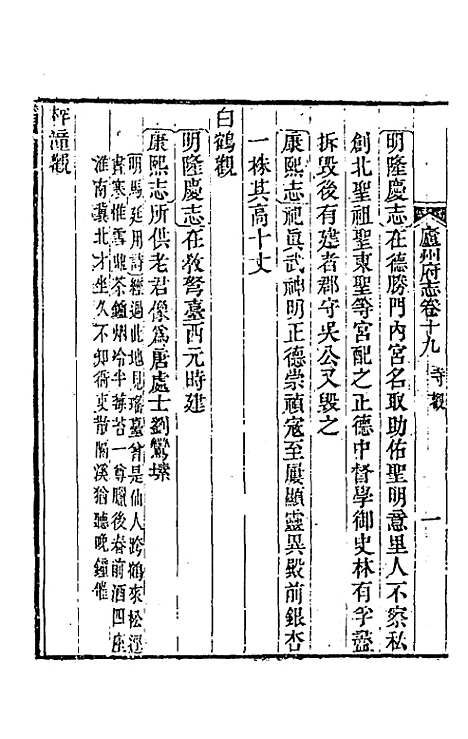 廬州府志卷十九 寺觀 一
明隆慶志在德勝門內宮名取助佑聖明意里人不察私
創北聖祖聖東聖等宮配之正德中督學御史林有孚盡
拆毀後有建者郡守吳公又毀之
康熙志祀眞武神明正德崇禎寇至屢顯靈異殿前銀杏
一株其高十丈
白鶴觀
明隆慶志在教弩臺西元時建
康熙志所供老君像爲唐處士劉鸞塐
明馬廷用詩經過此地見瑤臺曾是仙人跨鶴來松逕
晝寒惟雪 茶鑪烟冷半莓苔一尊臘後春前酒四座
淮南冀北才坐久不知衙吏散隔溪猶聽晚鐘催
梓潼觀